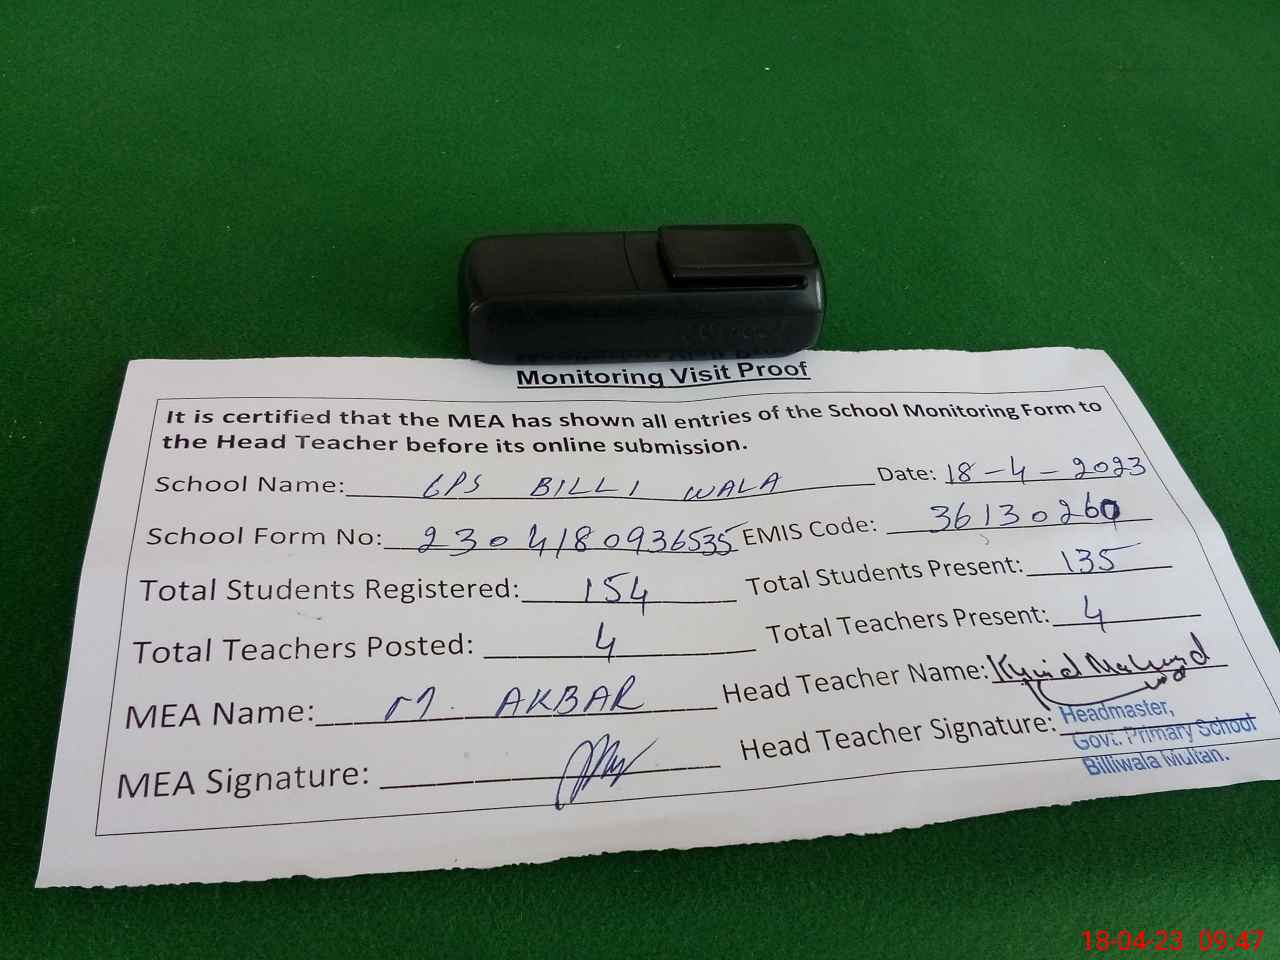 Monitoring Visit Proof
It is certified that the MEA has shown all entries of the School Monitoring Form to
the Head Teacher before its online submission.
School Name: GPS BILLI WALA Date: 18-4-2023
School Form No: 2304180936535 EMIS Code: 36130260
Total Students Registered: 154 Total Students Present: 135
Total Teachers Posted: 4 Total Teachers Present: 4
MEA Name: M. AKBAR Head Teacher Name:
MEA Signature: Head Teacher Signature:
Headmaster,
Govt. Primary School
Billiwala Multan.
18-04-23 09:47